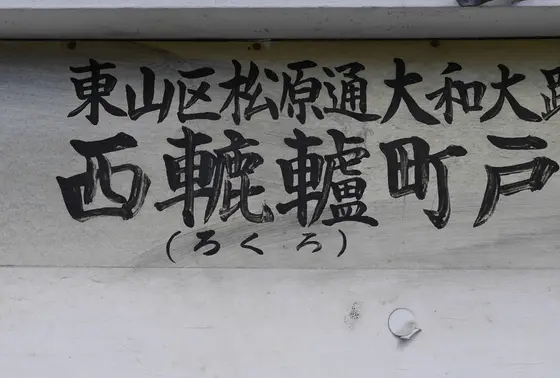 東山区松原通大和大路
西轆轤町戸
(ろくろ)